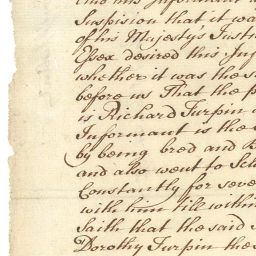 Suspision that it wa
of his Majestys Justi
Essex desired this Inf
whether it was the s
before us That the p
is Richard Turpin
Informant is the s
by being bred and B
and also went to Sch
Constantly for seve
with him till within
saith that the said
Dorothy Turpin the s